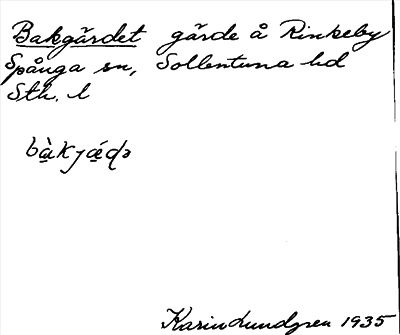 Bakgärdet gärde å Rinkeby
Spånga sn, Sollentuna hd
Sth. l
bàkjáɖə
Karin Lundgren 1935